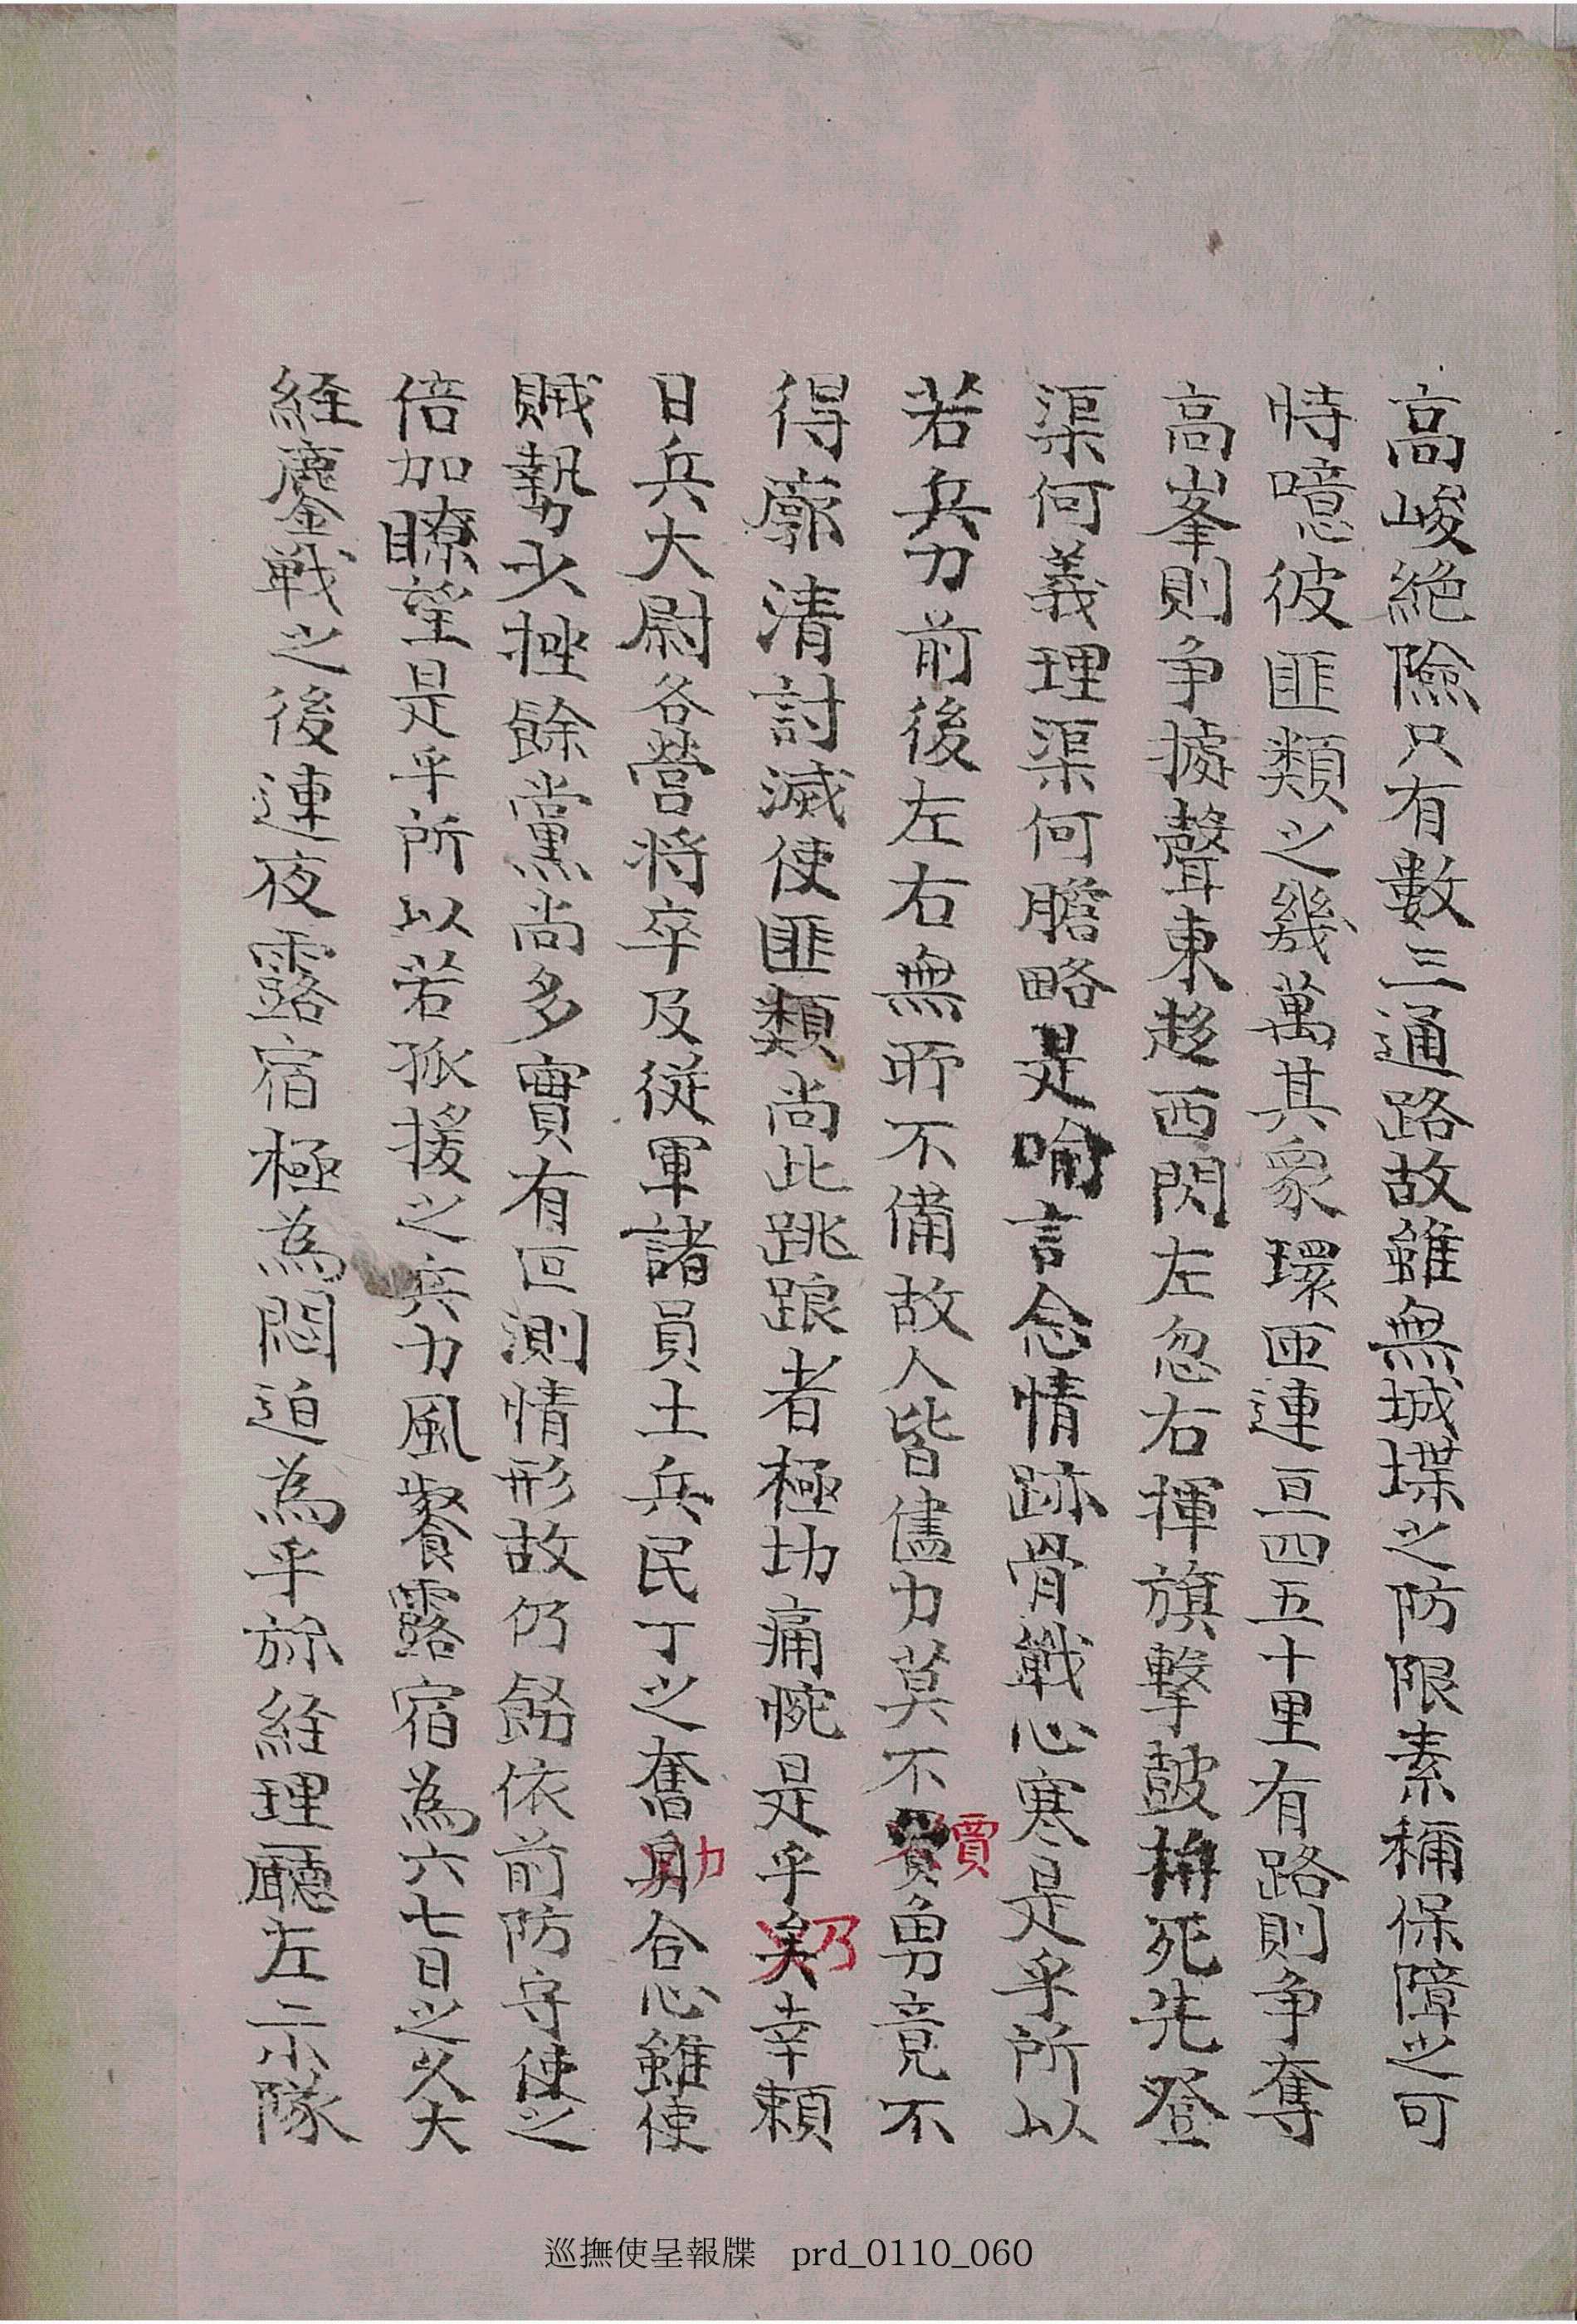 高峻絶險只有數三通路故雖無城堞之防限素稱保障之可
恃噫彼匪類之幾萬其衆環匝連亘四五十里有路則争奪
高峯則争據聲東趍西閃左忽右揮旗擊鼓拚死先登
渠何義理渠何膽略是喻言念情跡骨戰心寒是乎所以
若兵力前後左右無所不備故人皆儘力莫不賈勇竟不
得廓清討滅使匪類尚此跳踉者極切痛惋是乎乃幸賴
日兵大尉各營将卒及從軍諸員土兵民丁之奮勛合心雖使
賊勢少挫餘黨尚多實有叵測情形故仍飭依前防守使之
倍加瞭望是乎所以若孤援之兵力風餐露宿為六七日之久大
経鏖戰之後連夜露宿極為悶迫為乎旀経理廳左二小隊
巡撫使呈報牒 prd_0110_060